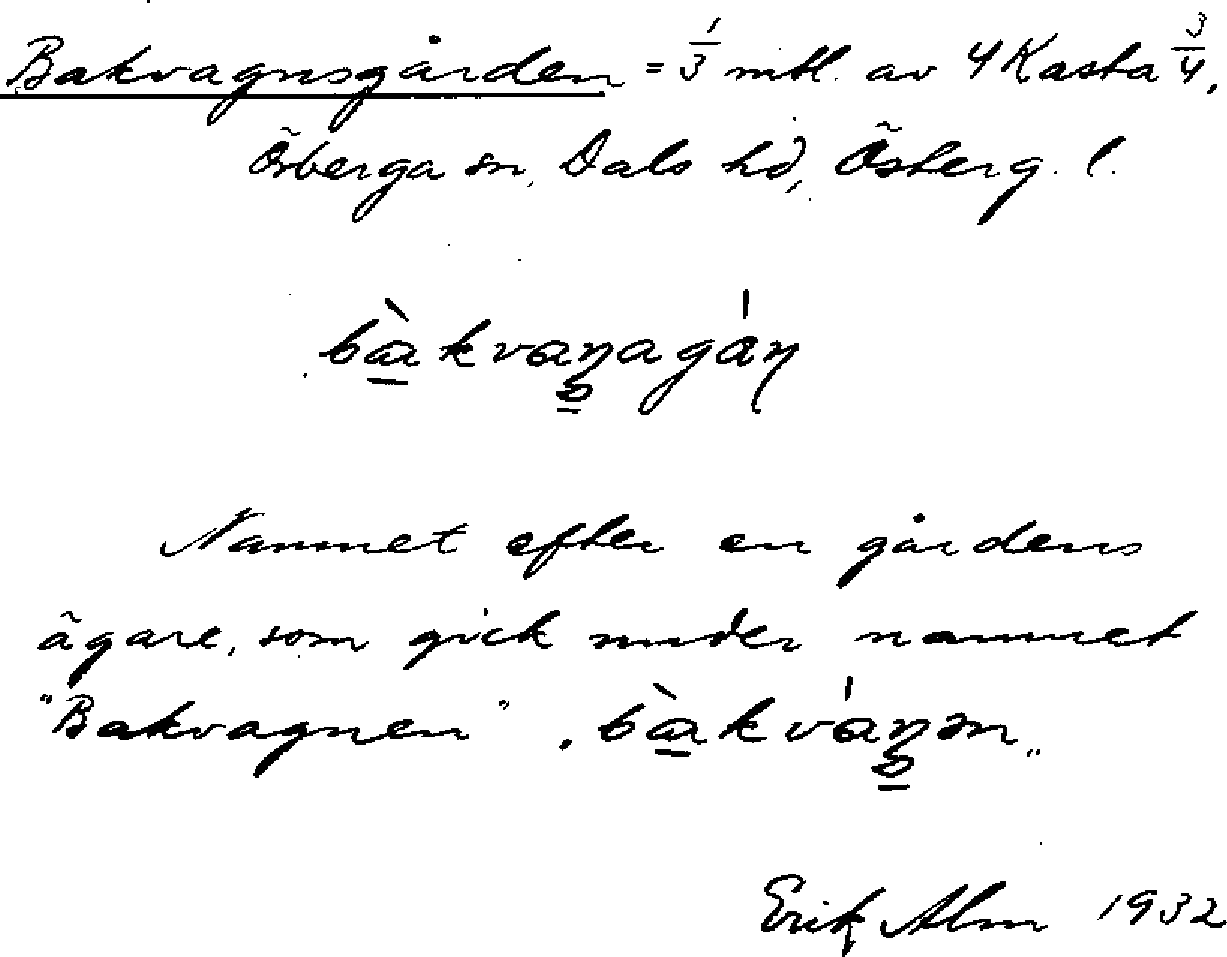 Bakvagnsgården = 1/3 mtl. av 4 Kasta 3/4,
Örberga sn, Dals hd, Österg. l.
bàkvaŋagáɳ
Namnet efter en gårdens
ägare, som gick under namnet
"Bakvagnen",
Erik Alm 1932